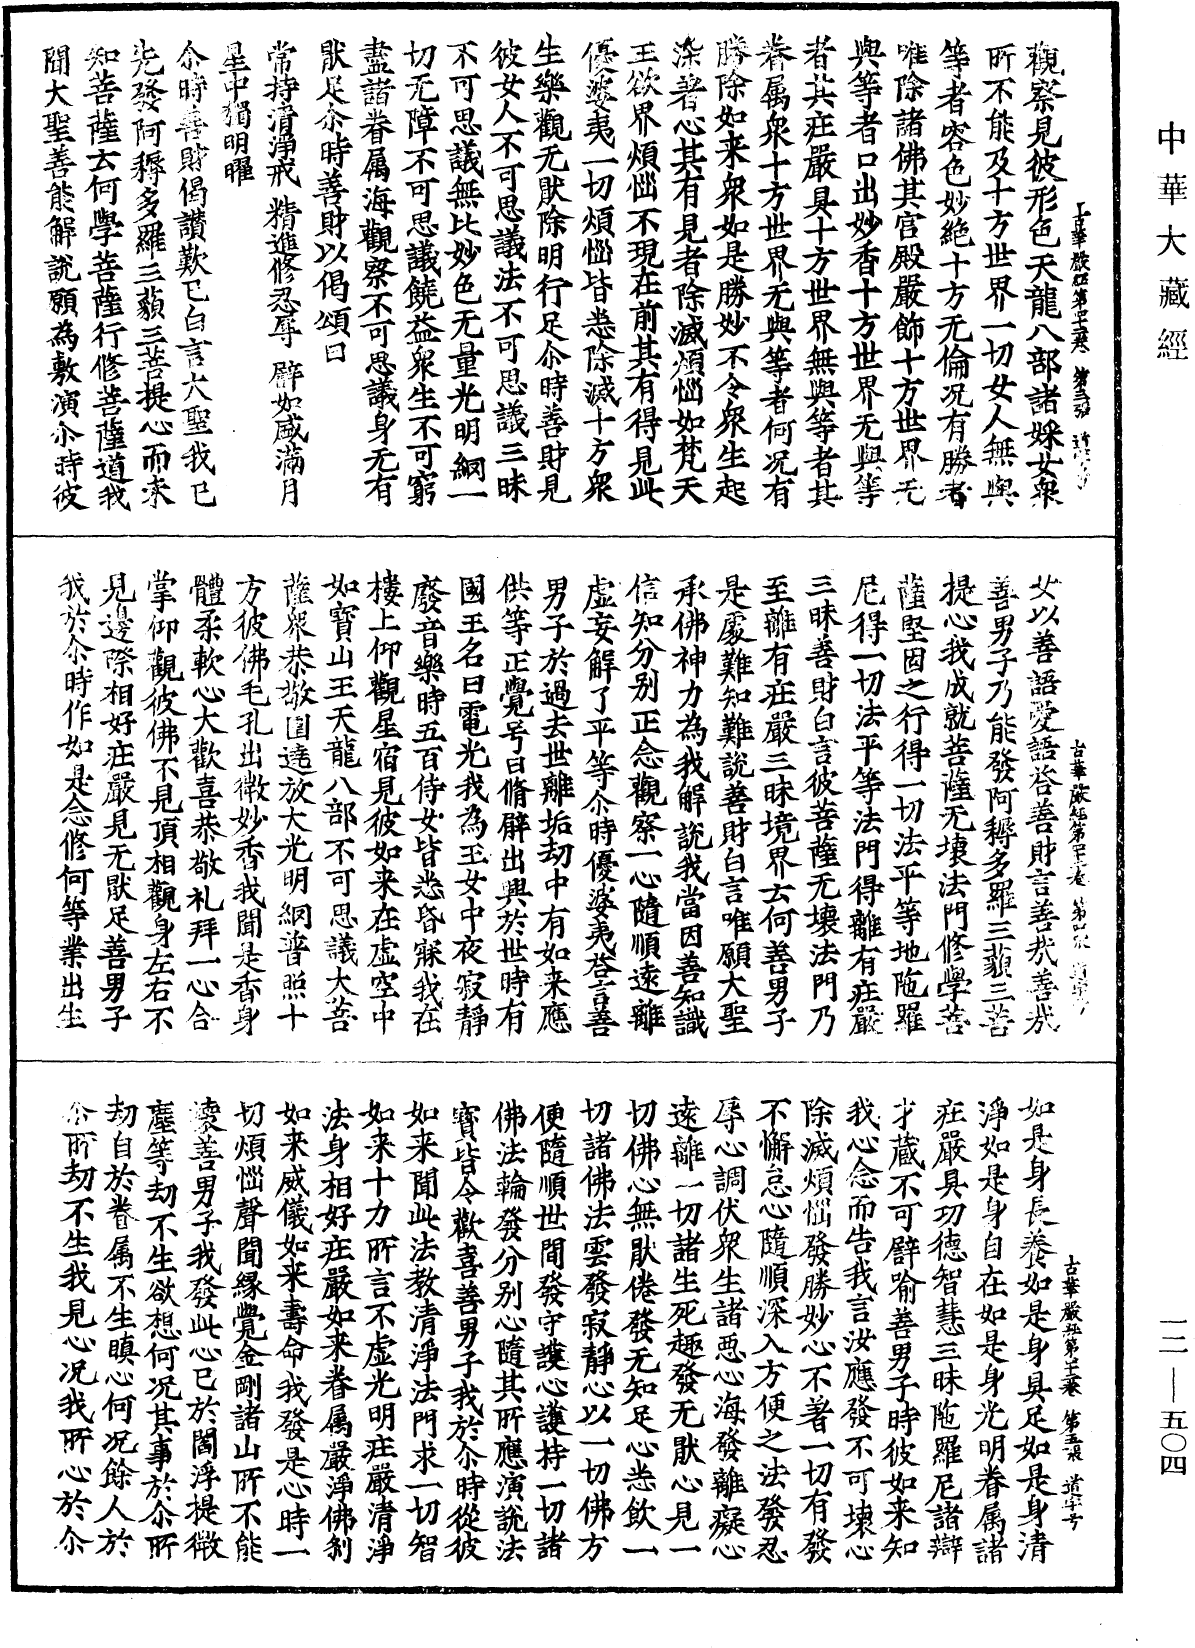 中華大藏經
一二—五〇四
觀察見彼形色天龍八部諸婇女衆
所不能及十方世界一切女人無與
等者容色妙絶十方无倫况有勝者
唯除諸佛其宫殿嚴飾十方世界无
與等者口出妙香十方世界无與等
者其莊嚴具十方世界無與等者其
眷属衆十方世界无與等者何况有
勝除如来衆如是勝妙不令衆生起
染著心其有見者除滅煩惱如梵天
王欲界煩惱不現在前其有得見此
優婆夷一切煩惱皆悉除滅十方衆
生樂觀无猒除明行足尒時善財見
彼女人不可思議法不可思議三昧
不可思議無比妙色无量光明網一
切无障不可思議饒益衆生不可窮
盡諸眷属海觀察不可思議身无有
猒足尒時善財以偈頌曰
常持清淨戒 精進修忍辱 譬如盛滿月
星中獨明曜
尒時善財偈讚歎已白言大聖我已
先發阿耨多羅三藐三菩提心而未
知菩薩云何學菩薩行修菩薩道我
聞大聖善能解說願為敷演尒時彼
古華嚴經第四十三卷 第四張 道字号
女以善語愛語荅善財言善㢤善㢤
善男子乃能發阿耨多羅三藐三菩
提心我成就菩薩无壞法門修學菩
薩堅固之行得一切法平等地陁羅
尼得一切法平等法門得離有莊嚴
三昧善財白言彼菩薩无壞法門乃
至離有莊嚴三昧境界云何善男子
是處難知難說善財白言唯願大聖
承佛神力為我解說我當因善知識
信知分別正念觀察一心隨順遠離
虚妄解了平等尒時優婆夷荅言善
男子於過去世離垢劫中有如来應
供等正覺号曰脩臂出興於世時有
國王名曰電光我為王女中夜寂靜
廢音樂時五百侍女皆悉昏寐我在
樓上仰觀星宿見彼如来在虚空中
如寳山王天龍八部不可思議大菩
薩衆恭敬圍遶放大光明網普照十
方彼佛毛孔出微妙香我聞是香身
體柔軟心大歡喜恭敬礼拜一心合
掌仰觀彼佛不見頂相觀身左右不
見邊際相好莊嚴見无猒足善男子
我於尒時作如是念修何等業出生
古華嚴經第四十三卷 第五張 道字号
如是身長養如是身具足如是身清
淨如是身自在如是身光明眷属諸
莊嚴具功德智慧三昧陁羅尼諸辯
才藏不可譬喻善男子時彼如来知
我心念而告我言汝應發不可壞心
除滅煩惱發勝妙心不著一切有發
不懈怠心隨順深入方便之法發忍
辱心調伏衆生諸惡心海發離癡心
遠離一切諸生死趣發无猒心見一
切佛心無猒倦發无知足心悉飲一
切諸佛法雲發寂靜心以一切佛方
便隨順世間發守護心護持一切諸
佛法輪發分别心隨其所應演說法
寶皆令歡喜善男子我於尒時從彼
如来聞此法教清淨法門求一切智
如来十力所言不虚光明莊嚴清淨
法身相好莊嚴如来眷属嚴淨佛刹
如来威儀如来壽命我發是心時一
切煩惱聲聞緣覺金剛諸山所不能
壞善男子我發此心已於閻浮提微
塵等劫不生欲想何况其事於尒所
劫自於眷属不生瞋心何况餘人於
尒所劫不生我見心况我所心於尒